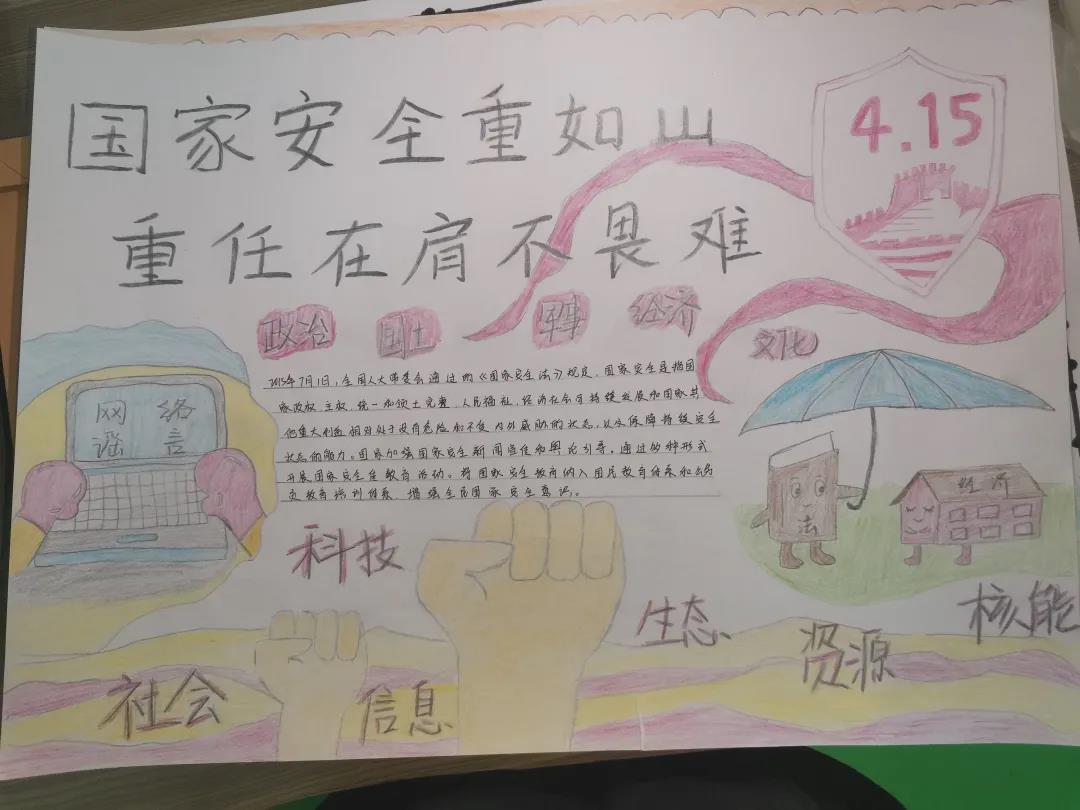 国家安全重如山
4.15
重任在肩不畏难
政治 国土 军事 经济 文化
2015年7月1日,全国人大常委会通过的《国家安全法》规定,国家安全是指国
家政权、主权、统一和领土完整、人民福祉、经济社会可持续发展和国家其
他重大利益相对处于没有危险和不受内外威胁的状态,以及保障持续安全
状态的能力。国家加强国家安全新闻宣传和舆论引导,通过多种形式
开展国家安全宣教育活动。将国家安全教育纳入国民教育体系和公务
员教育培训体系,增强全民国家安全意识。
网络
谣言
经济
法
科技
生态
核能
资源
社会
信息